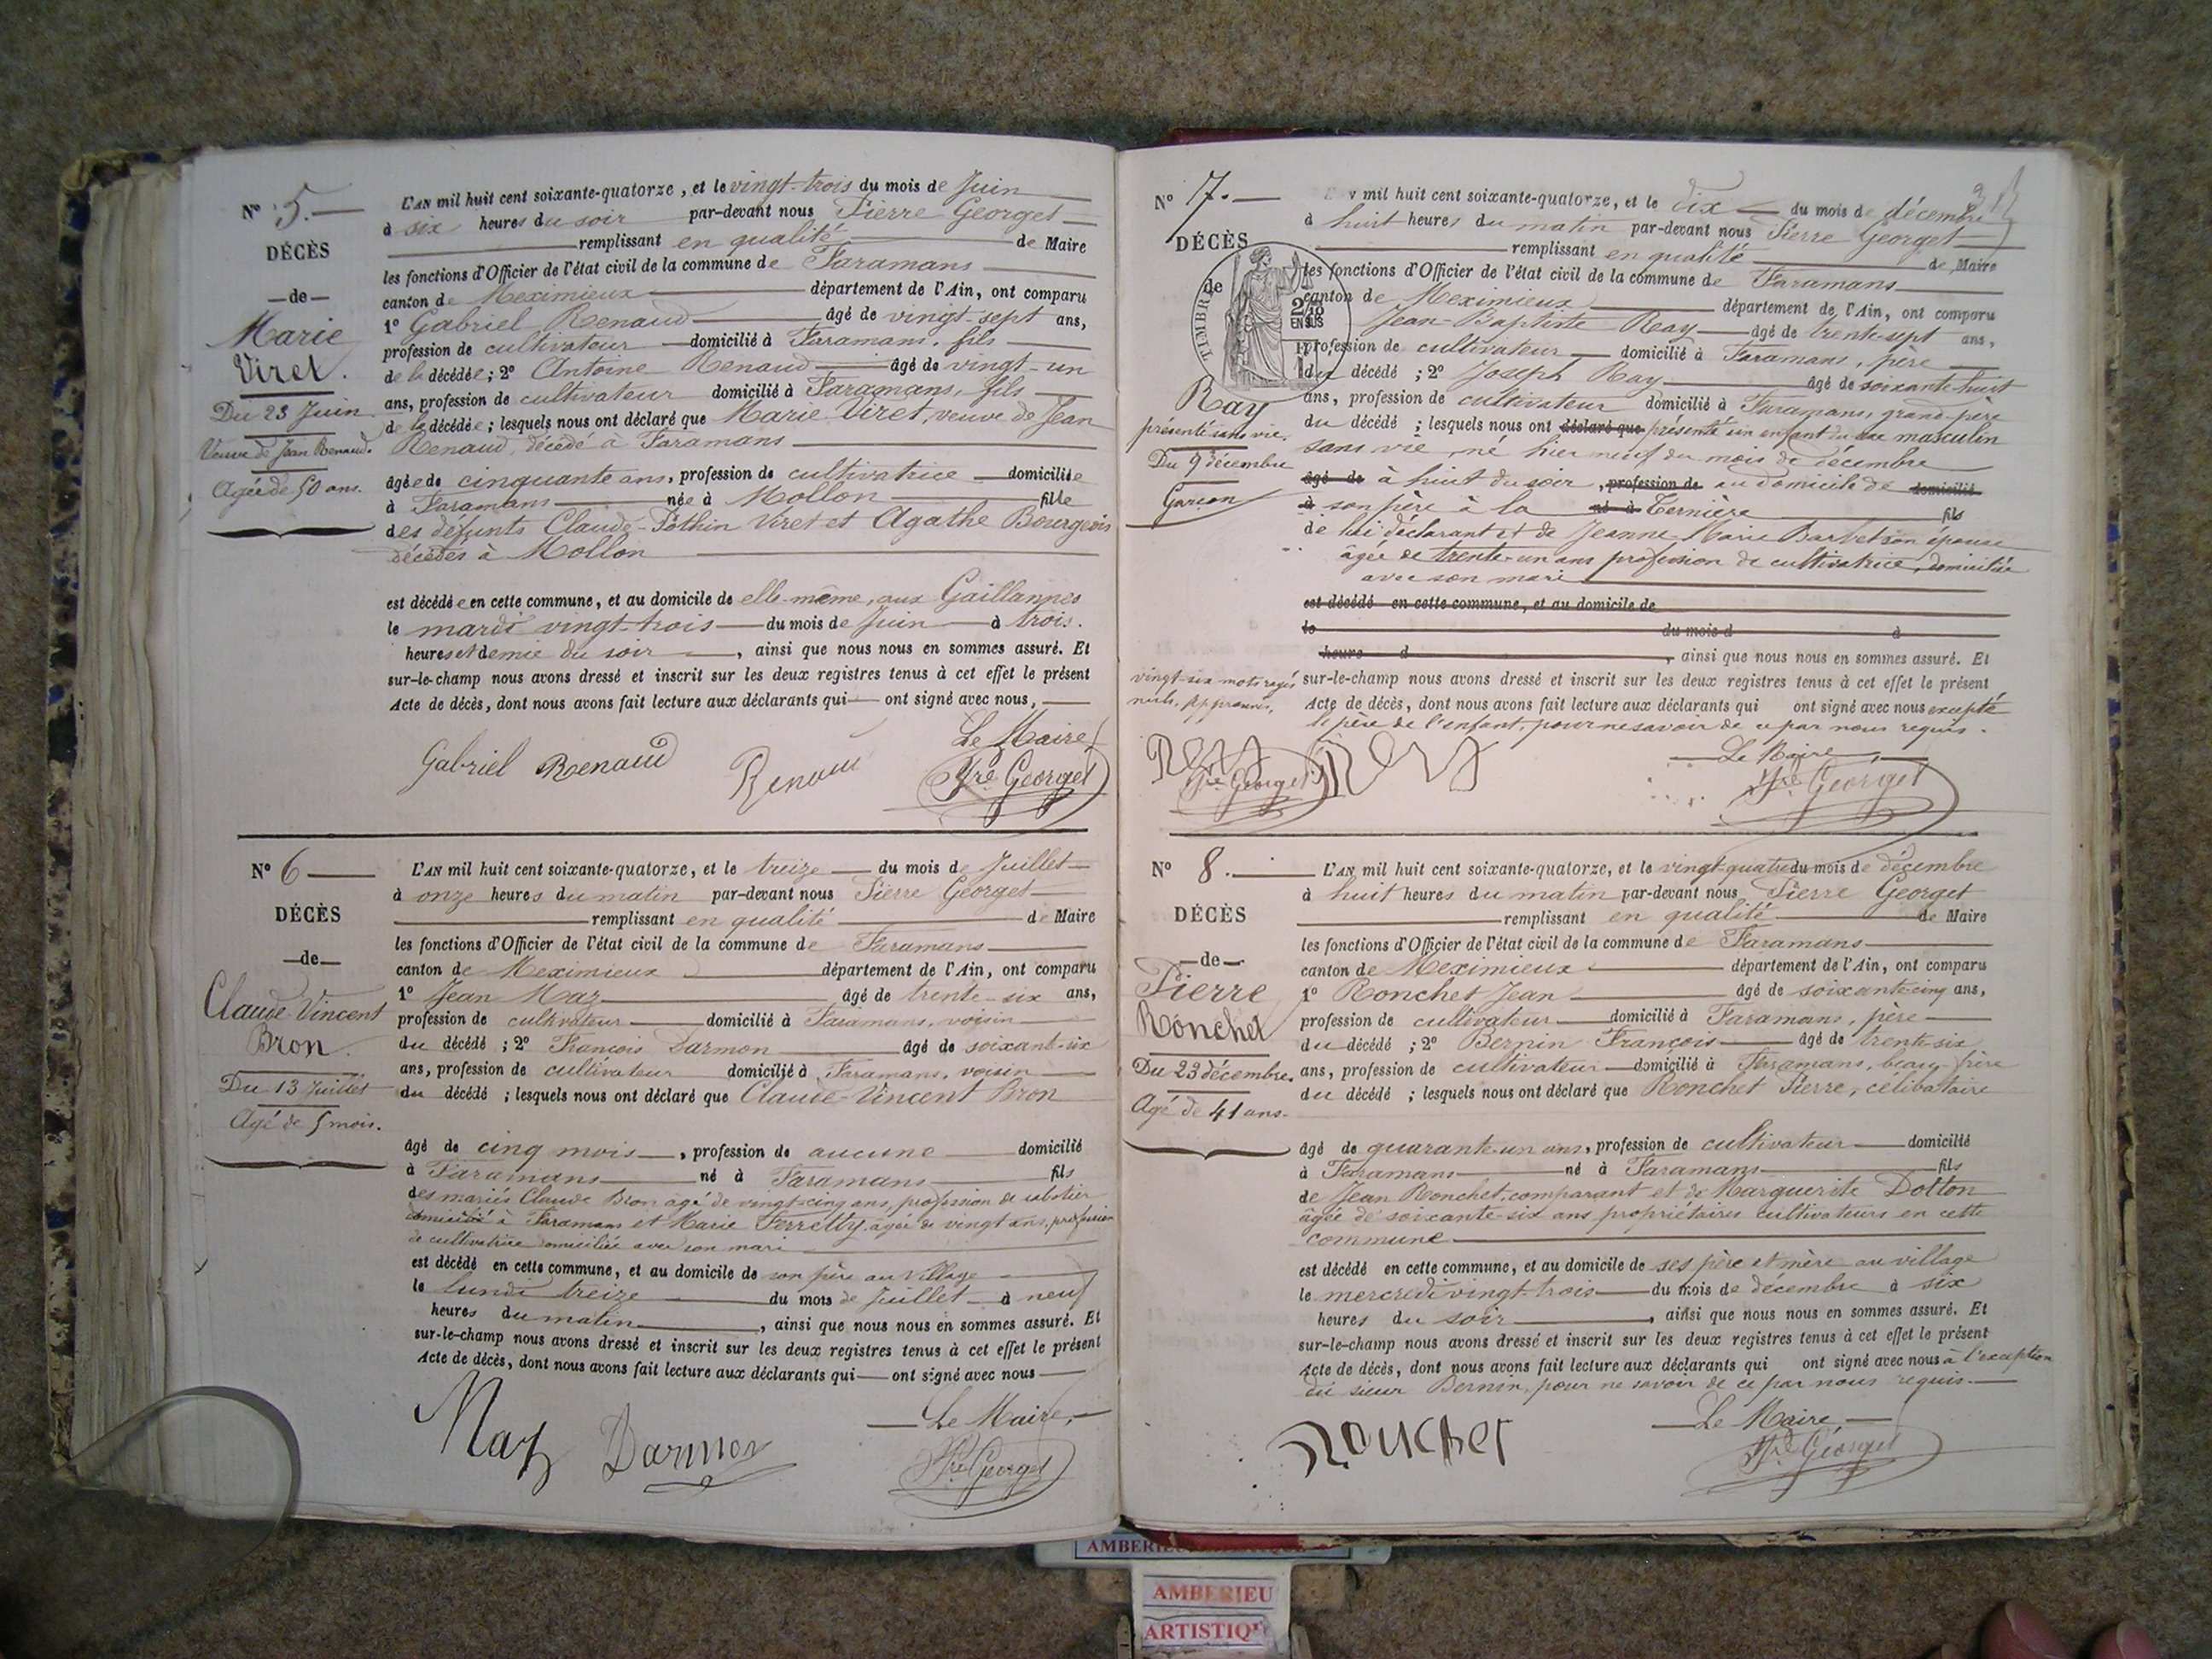 N° 5.
DÉCÈS
— de —
Marie
Viret.
Du 23 Juin
Veuve de Jean Renaud.
Agée de 50 ans.
L'AN mil huit cent soixante-quatorze, et le vingt-trois du mois de Juin
à six heures du soir par-devant nous Pierre Georget
remplissant en qualité de Maire
les fonctions d'Officier de l'état civil de la commune de Faramans
canton de Meximieux département de l'Ain, ont comparu
1° Gabriel Renaud âgé de vingt-sept ans,
profession de cultivateur domicilié à Faramans, fils
de la décédée; 2° Antoine Renaud âgé de vingt-un
ans, profession de cultivateur domicilié à Faramans, fils
de la décédée; lesquels nous ont déclaré que Marie Viret, veuve de Jean
Renaud, décédé à Faramans
âgée de cinquante ans, profession de cultivatrice domiciliée
à Faramans née à Mollon fille
des défunts Claude-Pothin Viret et Agathe Bourgeois
décédés à Mollon
est décédée en cette commune, et au domicile de elle-même, aux Gaillannes
le mardi vingt-trois du mois de Juin à trois.
heures et demie du soir, ainsi que nous nous en sommes assuré. Et
sur-le-champ nous avons dressé et inscrit sur les deux registres tenus à cet effet le présent
Acte de décès, dont nous avons fait lecture aux déclarants qui ont signé avec nous,
Le Maire
Gabriel Renaud Renaud Pre Georget
N° 6
DÉCÈS
— de —
Claude-Vincent
Bron.
Du 13 Juillet
Agé de 5 mois.
L'AN mil huit cent soixante-quatorze, et le treize du mois de Juillet
à onze heures du matin par-devant nous Pierre Georget
remplissant en qualité de Maire
les fonctions d'Officier de l'état civil de la commune de Faramans
canton de Meximieux département de l'Ain, ont comparu
1° Jean Maz âgé de trente-six ans,
profession de cultivateur domicilié à Faramans, voisin
du décédé; 2° François Darmon âgé de soixante-six
ans, profession de cultivateur domicilié à Faramans, voisin
du décédé; lesquels nous ont déclaré que Claude-Vincent Bron
âgé de cinq mois, profession de aucune domicilié
à Faramans né à Faramans fils
des mariés Claude Bron âgé de vingt-cinq ans, profession de sabotier
domicilié à Faramans et Marie Ferretty, agée de vingt ans, profession
de cultivatrice domiciliée avec son mari
est décédé en cette commune, et au domicile de son père au Village
le lundi treize du mois de Juillet à neuf
heures du matin, ainsi que nous nous en sommes assuré. Et
sur-le-champ nous avons dressé et inscrit sur les deux registres tenus à cet effet le présent
Acte de décès, dont nous avons fait lecture aux déclarants qui ont signé avec nous
Le Maire,
Maz Darmon Pre Georget
N° 7.
DÉCÈS
de
TIMBRE
EN SUS
Ray
présenté sans vie.
Du 9 décembre
Garçon
mil huit cent soixante-quatorze, et le dix du mois de décembre
à huit heures du matin par-devant nous Pierre Georget
remplissant en qualité de Maire
les fonctions d'Officier de l'état civil de la commune de Faramans
canton de Meximieux département de l'Ain, ont comparu
Jean-Baptiste Ray âgé de trente-sept ans,
profession de cultivateur domicilié à Faramans, père
du décédé; 2° Joseph Ray âgé de soixante-huit
ans, profession de cultivateur domicilié à Faramans, grand-père
du décédé; lesquels nous ont déclaré que présenté un enfant du sexe masculin
sans vie, né hier neuf du mois de décembre
âgé de à huit du soir, profession de au domicile de domicilié
à son père à la né à Ternière fils
de lui déclarant et de Jeanne-Marie Barbet son épouse
âgée de trente-un ans profession de cultivatrice, domiciliée
avec son mari
est décédé en cette commune, et au domicile de
le du mois d à
heure d, ainsi que nous nous en sommes assuré. Et
vingt-six mots rayés
nuls, approuvés,
sur-le-champ nous avons dressé et inscrit sur les deux registres tenus à cet effet le présent
Acte de décès, dont nous avons fait lecture aux déclarants qui ont signé avec nous excepté
le père de l'enfant, pour ne savoir de ce par nous requis.
Le Maire
Pre Georget Pre Georget
N° 8.
DÉCÈS
— de —
Pierre
Ronchet
Du 23 décembre.
Agé de 41 ans.
L'AN mil huit cent soixante-quatorze, et le vingt-quatre du mois de décembre
à huit heures du matin par-devant nous Pierre Georget
remplissant en qualité de Maire
les fonctions d'Officier de l'état civil de la commune de Faramans
canton de Meximieux département de l'Ain, ont comparu
1° Ronchet Jean âgé de soixante-cinq ans,
profession de cultivateur domicilié à Faramans, père
du décédé; 2° Bernin François âgé de trente-six
ans, profession de cultivateur domicilié à Faramans, beau-frère
du décédé; lesquels nous ont déclaré que Ronchet Pierre, célibataire
âgé de quarante-un ans, profession de cultivateur domicilié
à Faramans né à Faramans fils
de Jean Ronchet, comparant et de Marguerite Dotton
âgée de soixante-six ans propriétaires cultivateurs en cette
commune
est décédé en cette commune, et au domicile de ses père et mère au village
le mercredi vingt-trois du mois de décembre à six
heures du soir, ainsi que nous nous en sommes assuré. Et
sur-le-champ nous avons dressé et inscrit sur les deux registres tenus à cet effet le présent
Acte de décès, dont nous avons fait lecture aux déclarants qui ont signé avec nous à l'exception
du sieur Bernin, pour ne savoir de ce par nous requis.
Le Maire,
Ronchet Pre Georget
AMBERIEU
ARTISTIQUE